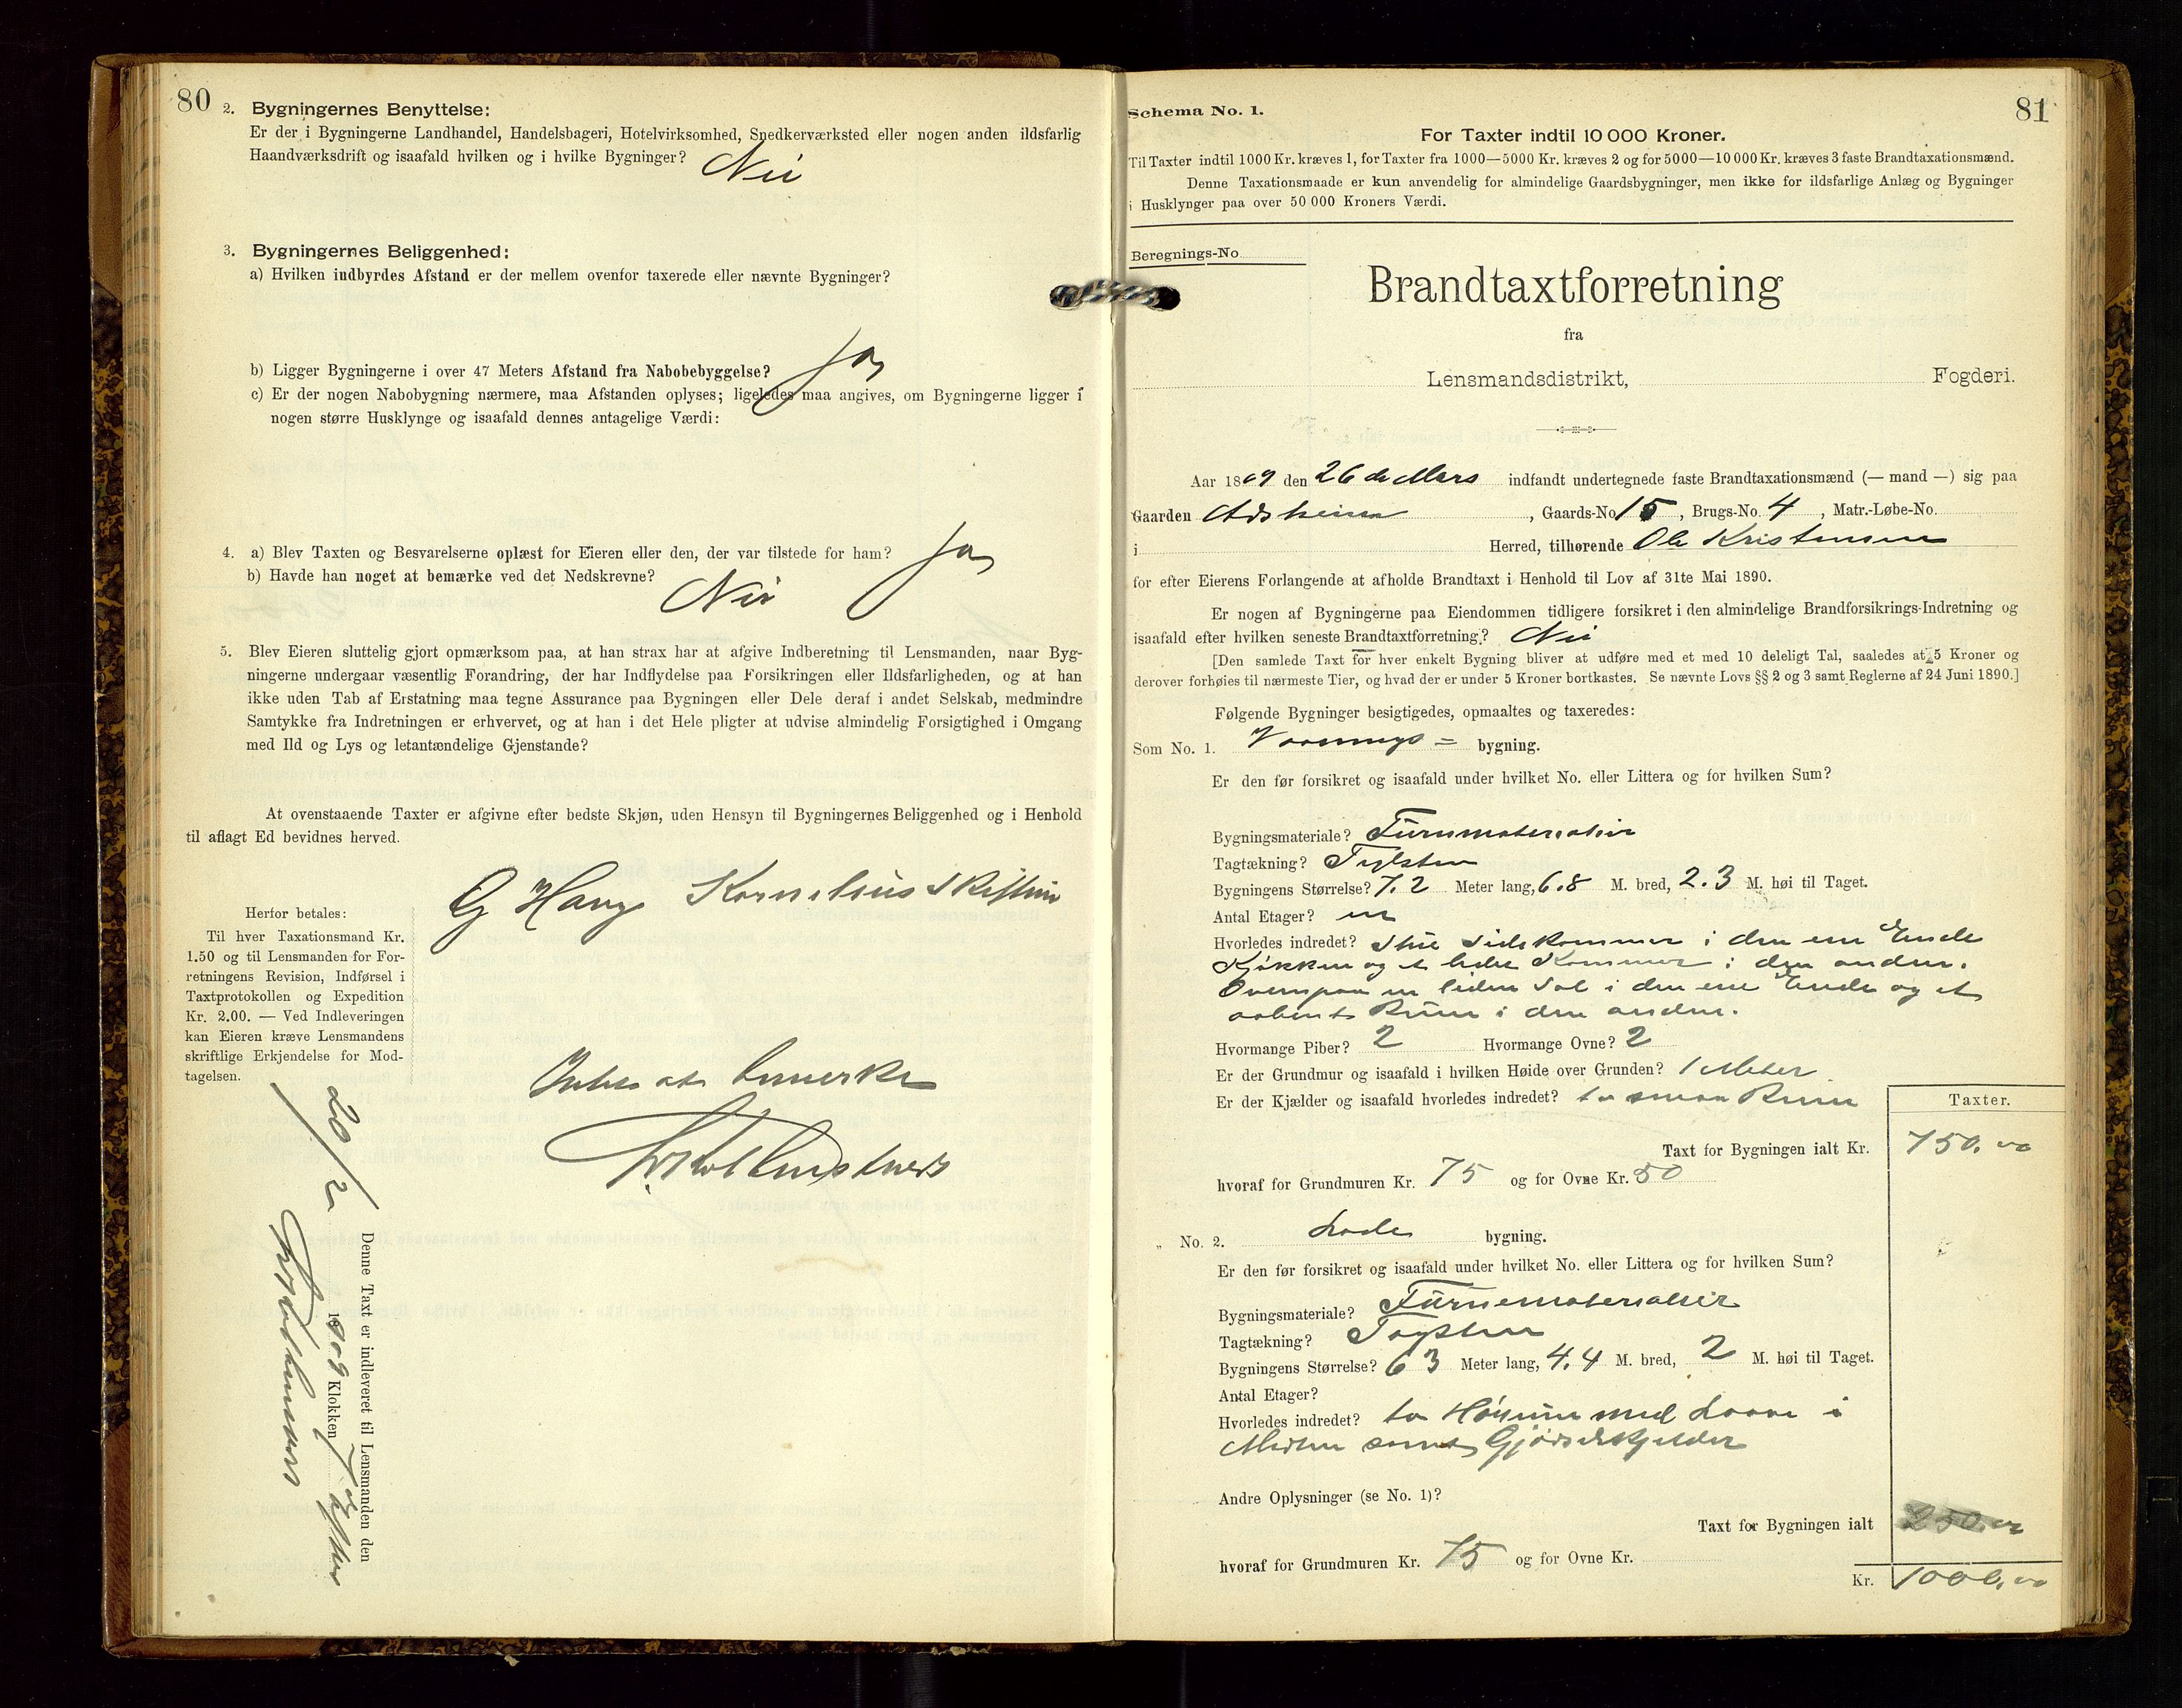 80
2. Bygningernes Benyttelse:
Er der i Bygningerne Landhandel, Handelsbageri, Hotelvirksomhed, Snedkerværksted eller nogen anden ildsfarlig
Haandværksdrift og isaafald hvilken og i hvilke Bygninger? Nei
3. Bygningernes Beliggenhed:
a) Hvilken indbyrdes Afstand er der mellem ovenfor taxerede eller nævnte Bygninger?
b) Ligger Bygningerne i over 47 Meters Afstand fra Nabobebyggelse? Ja
c) Er der nogen Nabobygning nærmere, maa Afstanden oplyses; ligeledes maa angives, om Bygningerne ligger i
nogen større Husklynge og isaafald dennes antagelige Værdi:
4. a) Blev Taxten og Besvarelserne oplæst for Eieren eller den, der var tilstede for ham? Ja
b) Havde han noget at bemærke ved det Nedskrevne? Nei
5. Blev Eieren sluttelig gjort opmærksom paa, at han strax har at afgive Indberetning til Lensmanden, naar Byg-
ningerne undergaar væsentlig Forandring, der har Indflydelse paa Forsikringen eller Ildsfarligheden, og at han
ikke uden Tab af Erstatning maa tegne Assurance paa Bygningen eller Dele deraf i andet Selskab, medmindre
Samtykke fra Indretningen er erhvervet, og at han i det Hele pligter at udvise almindelig Forsigtighed i Omgang
med Ild og Lys og letantændelige Gjenstande?
At ovenstaaende Taxter er afgivne efter bedste Skjøn, uden Hensyn til Bygningernes Beliggenhed og i Henhold
til aflagt Ed bevidnes herved.
G Hauge Kornelius
Herfor betales:
Til hver Taxationsmand Kr.
1.50 og til Lensmanden for For-
retningens Revision, Indførsel i
Taxtprotokollen og Expedition
Kr. 2.00. — Ved Indleveringen
kan Eieren kræve Lensmandens
skriftlige Erkjendelse for Mod-
tagelsen.
Intet at bemerke
Denne Taxt er indleveret til Lensmanden den
20/2 1909 Klokken 7 Efter
81
Schema No. 1.
For Taxter indtil 10 000 Kroner.
Til Taxter indtil 1000 Kr. kræves 1, for Taxter fra 1000—5000 Kr. kræves 2 og for 5000—10 000 Kr. kræves 3 faste Brandtaxationsmænd.
Denne Taxationsmaade er kun anvendelig for almindelige Gaardsbygninger, men ikke for ildsfarlige Anlæg og Bygninger
i Husklynger paa over 50 000 Kroners Værdi.
Beregnings-No
Brandtaxtforretning
fra
Lensmandsdistrikt, Fogderi.
Aar 1809 den 26de Mars indfandt undertegnede faste Brandtaxationsmænd (— mand —) sig paa
Gaarden Adsheim, Gaards-No 15, Brugs-No. 4, Matr.-Løbe-No.
i Herred, tilhørende Ole Kristensen
for efter Eierens Forlangende at afholde Brandtaxt i Henhold til Lov af 31te Mai 1890.
Er nogen af Bygningerne paa Eiendommen tidligere forsikret i den almindelige Brandforsikrings-Indretning og
isaafald efter hvilken seneste Brandtaxtforretning? Nei
[Den samlede Taxt for hver enkelt Bygning bliver at udføre med et med 10 deleligt Tal, saaledes at 5 Kroner og
derover forhøies til nærmeste Tier, og hvad der er under 5 Kroner bortkastes. Se nævnte Lovs §§ 2 og 3 samt Reglerne af 24 Juni 1890.]
Følgende Bygninger besigtigedes, opmaaltes og taxeredes:
Som No. 1. Vaanings= bygning.
Er den før forsikret og isaafald under hvilket No. eller Littera og for hvilken Sum?
Bygningsmateriale? Furumaterialier
Tagtækning? Teglsten
Bygningens Størrelse? 7.2 Meter lang, 6.8 M. bred, 2.3 M. høi til Taget.
Antal Etager? en
Hvorledes indredet? Stue Sidekammer i den ene Ende
Kjøkken og et lidet Kammer i den anden.
Ovenpaa en liden Sal i den ene Ende og et
aabent Rum i den anden.
Hvormange Piber? 2 Hvormange Ovne? 2
Er der Grundmur og isaafald i hvilken Høide over Grunden? 1 Meter
Er der Kjælder og isaafald hvorledes indredet? to smaa Rum
Taxter.
Taxt for Bygningen ialt Kr. 750.00
hvoraf for Grundmuren Kr. 75 og for Ovne Kr. 50
„ No. 2. Lade bygning.
Er den før forsikret og isaafald under hvilket No. eller Littera og for hvilken Sum?
Bygningsmateriale? Furumaterialier
Tagtækning? Tagsten
Bygningens Størrelse? 6 3 Meter lang, 4.4 M. bred, 2 M. høi til Taget.
Antal Etager?
Hvorledes indredet? to Hørum med Laave i
Midten samt Gjødselkjelder
Andre Oplysninger (se No. 1)?
Taxt for Bygningen ialt 250.00
hvoraf for Grundmuren Kr. 75 og for Ovne Kr.
Kr. 1000,00